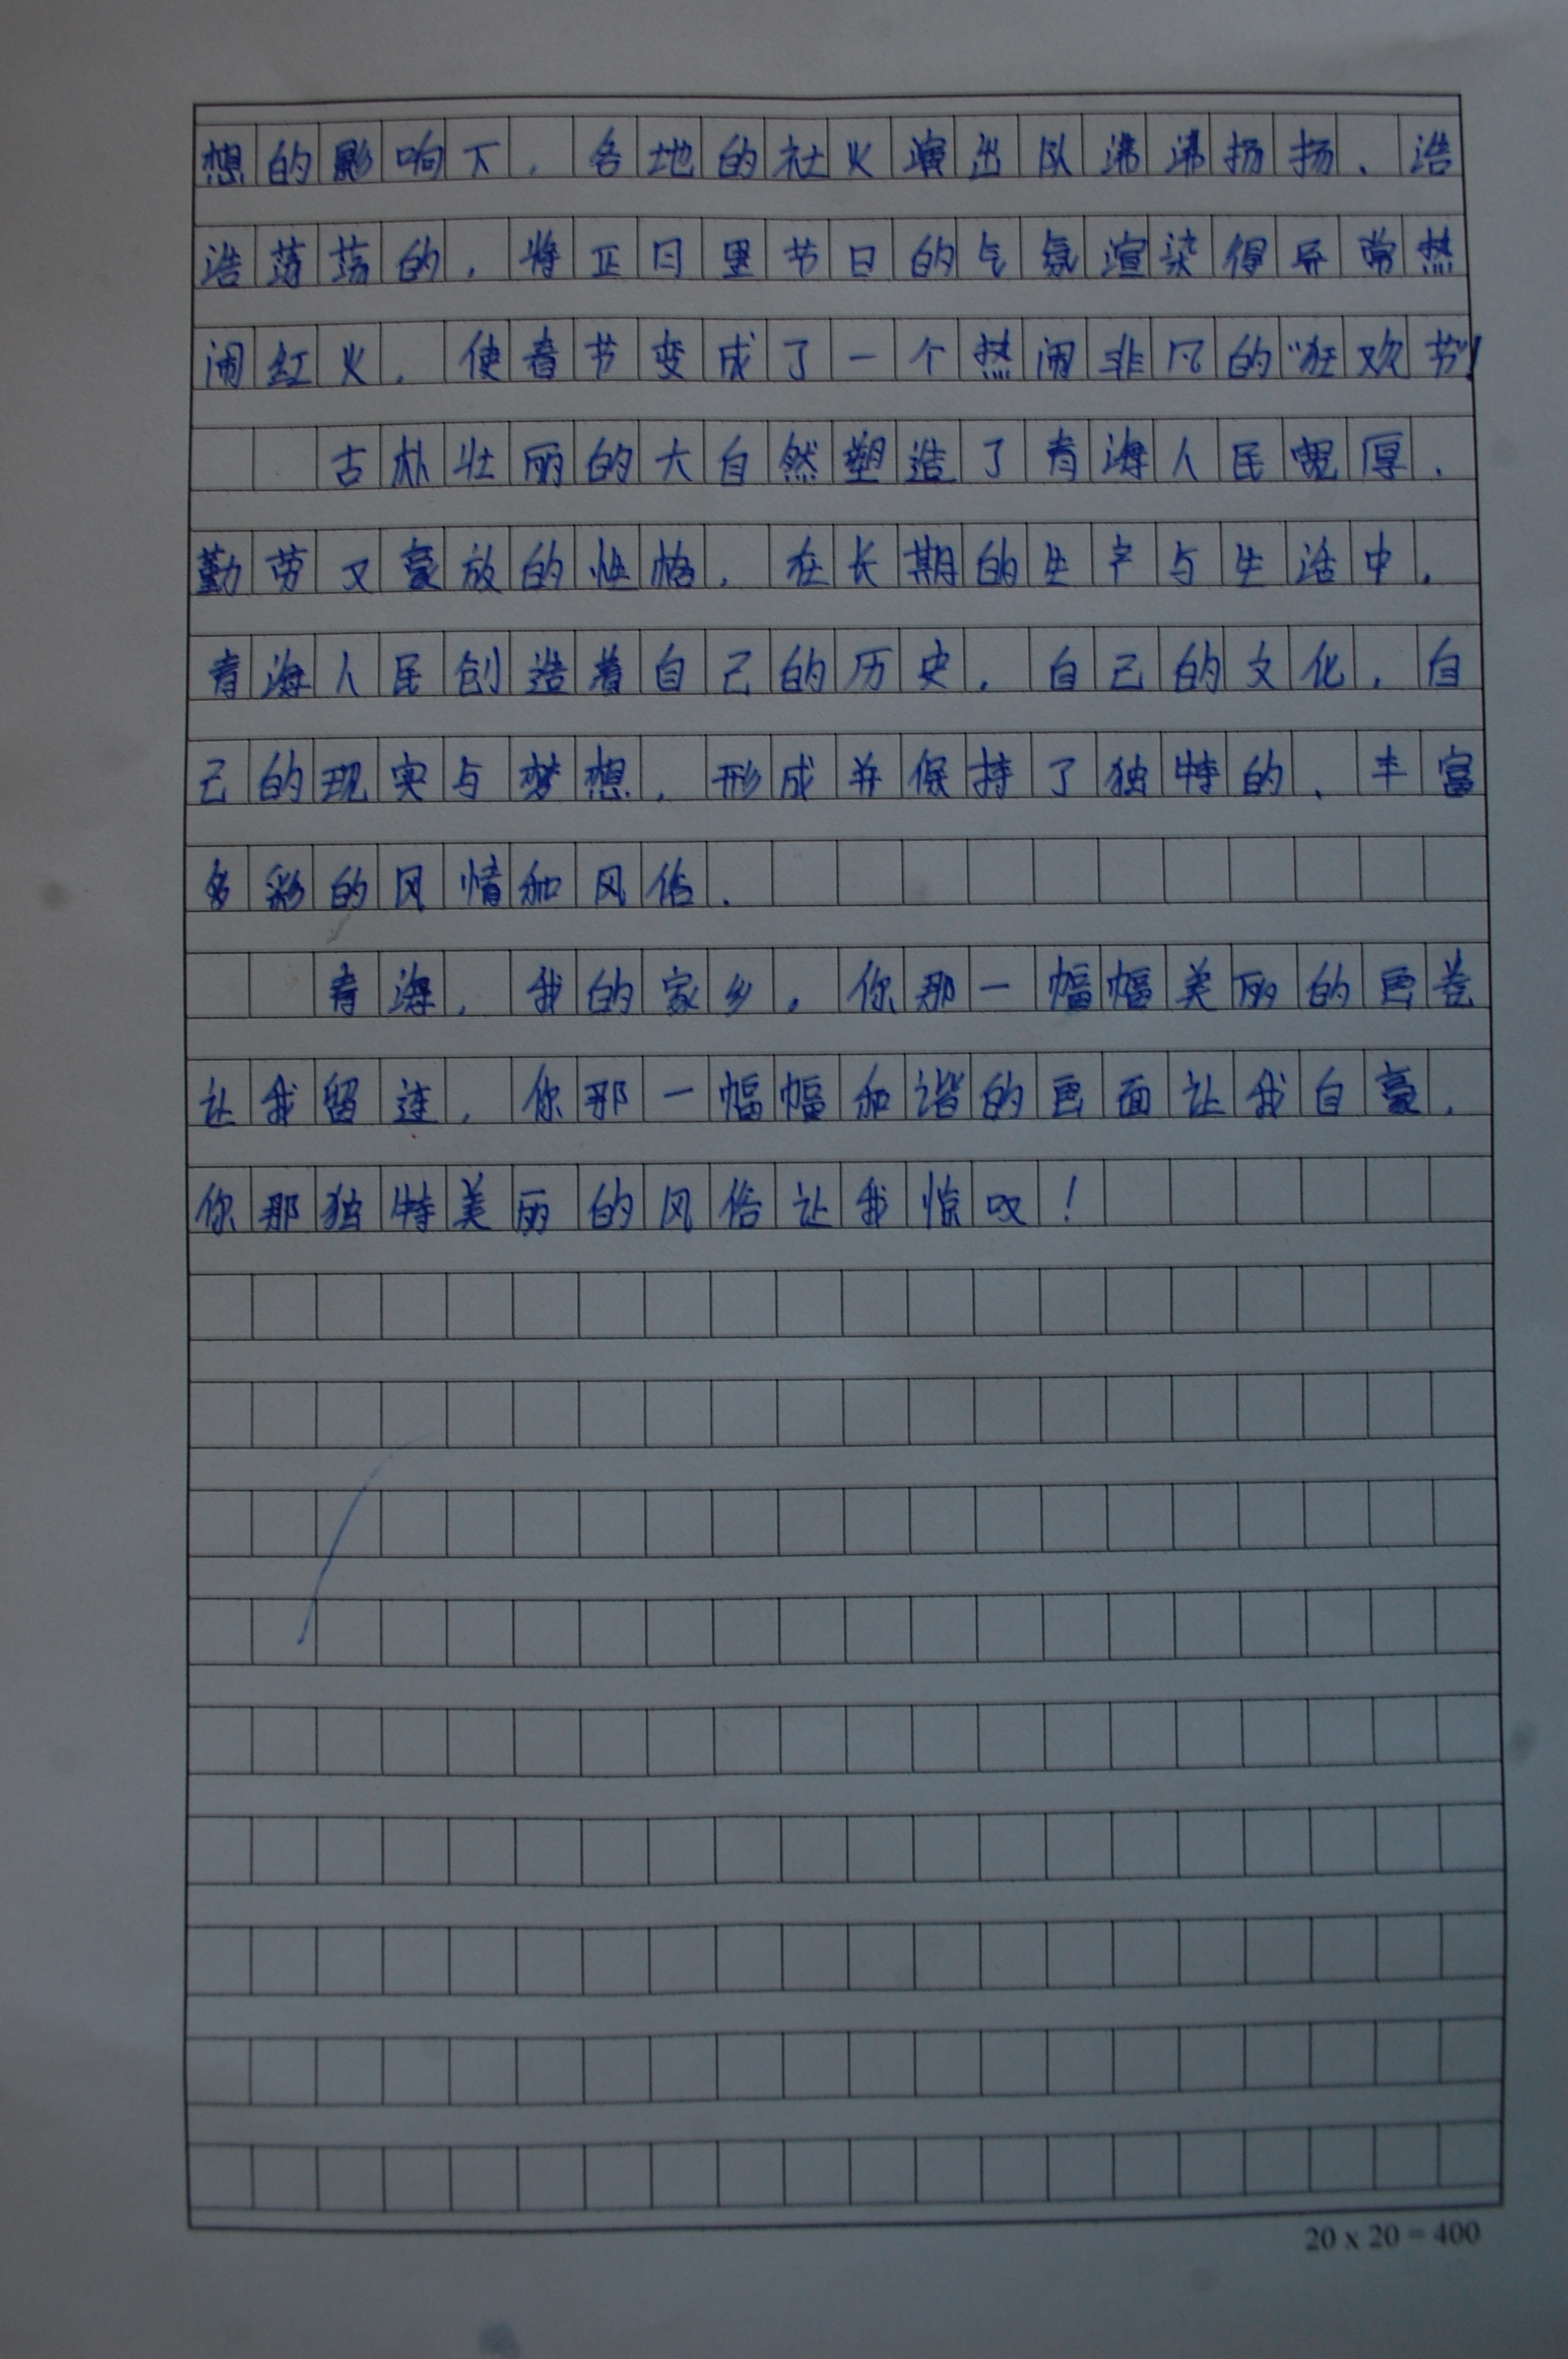 想的影响下，各地的社火演出队沸沸扬扬、浩
浩荡荡的，将正月里节日的气氛渲染得异常热
闹红火，使春节变成了一个热闹非凡的“狂欢节”！
古朴壮丽的大自然塑造了青海人民宽厚、
勤劳又豪放的性格，在长期的生产与生活中，
青海人民创造着自己的历史，自己的文化，自
己的现实与梦想，形成并保持了独特的、丰富
多彩的风情和风俗．
青海，我的家乡，你那一幅幅美丽的画卷
让我留连，你那一幅幅和谐的画面让我自豪，
你那独特美丽的风俗让我惊叹！
20 x 20 = 400